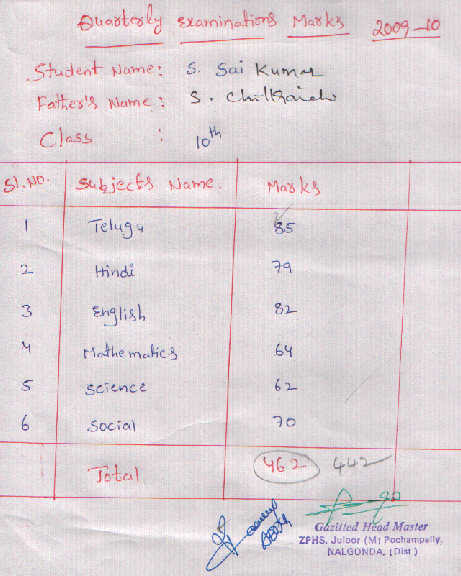 Quarterly examinations Marks 2009-10
Student Name: S. Sai Kumar
Father's Name: S.
Class : 10th
Sl.No. Subjects Name. Marks
1 Telugu 85
2 Hindi 79
3 English 82
4 Mathematics 64
5 Science 62
6 Social 70
Total 462 442
Gazitted Head Master
ZPHS. Juloor (M) Pochampally,
NALGONDA, (Dist)